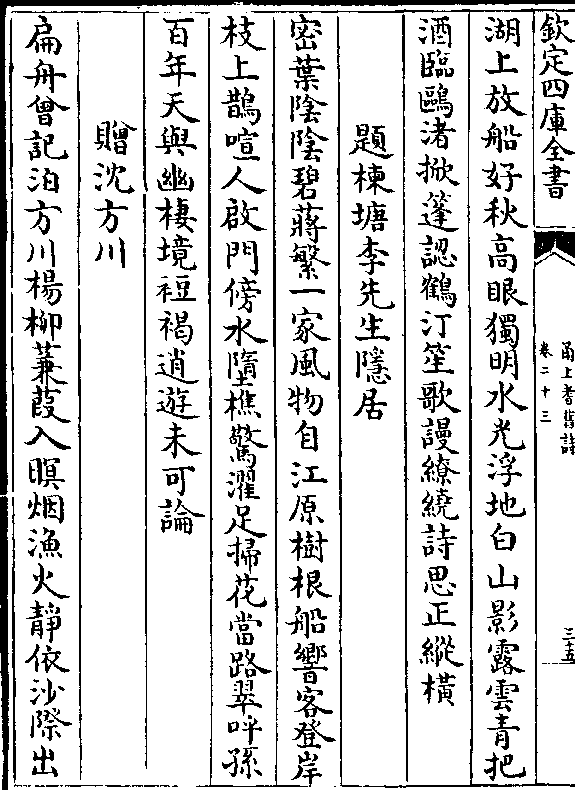 欽定四庫全書
甬上耆舊詩
卷二十三
三十五
湖上放船好秋高眼獨明水光浮地白山影露雲青把
酒臨鷗渚掀篷認鶴汀笙歌謾繚繞詩思正縱橫
題棟塘李先生隱居
密葉陰陰碧蔣繁一家風物自江原樹根船響客登岸
枝上鵲喧人啟門傍水墮樵驚濯足掃花當路翠呼孫
百年天與幽棲境裋褐逍遊未可論
贈沈方川
扁舟曾記泊方川楊柳蒹葭入暝烟漁火靜依沙際出